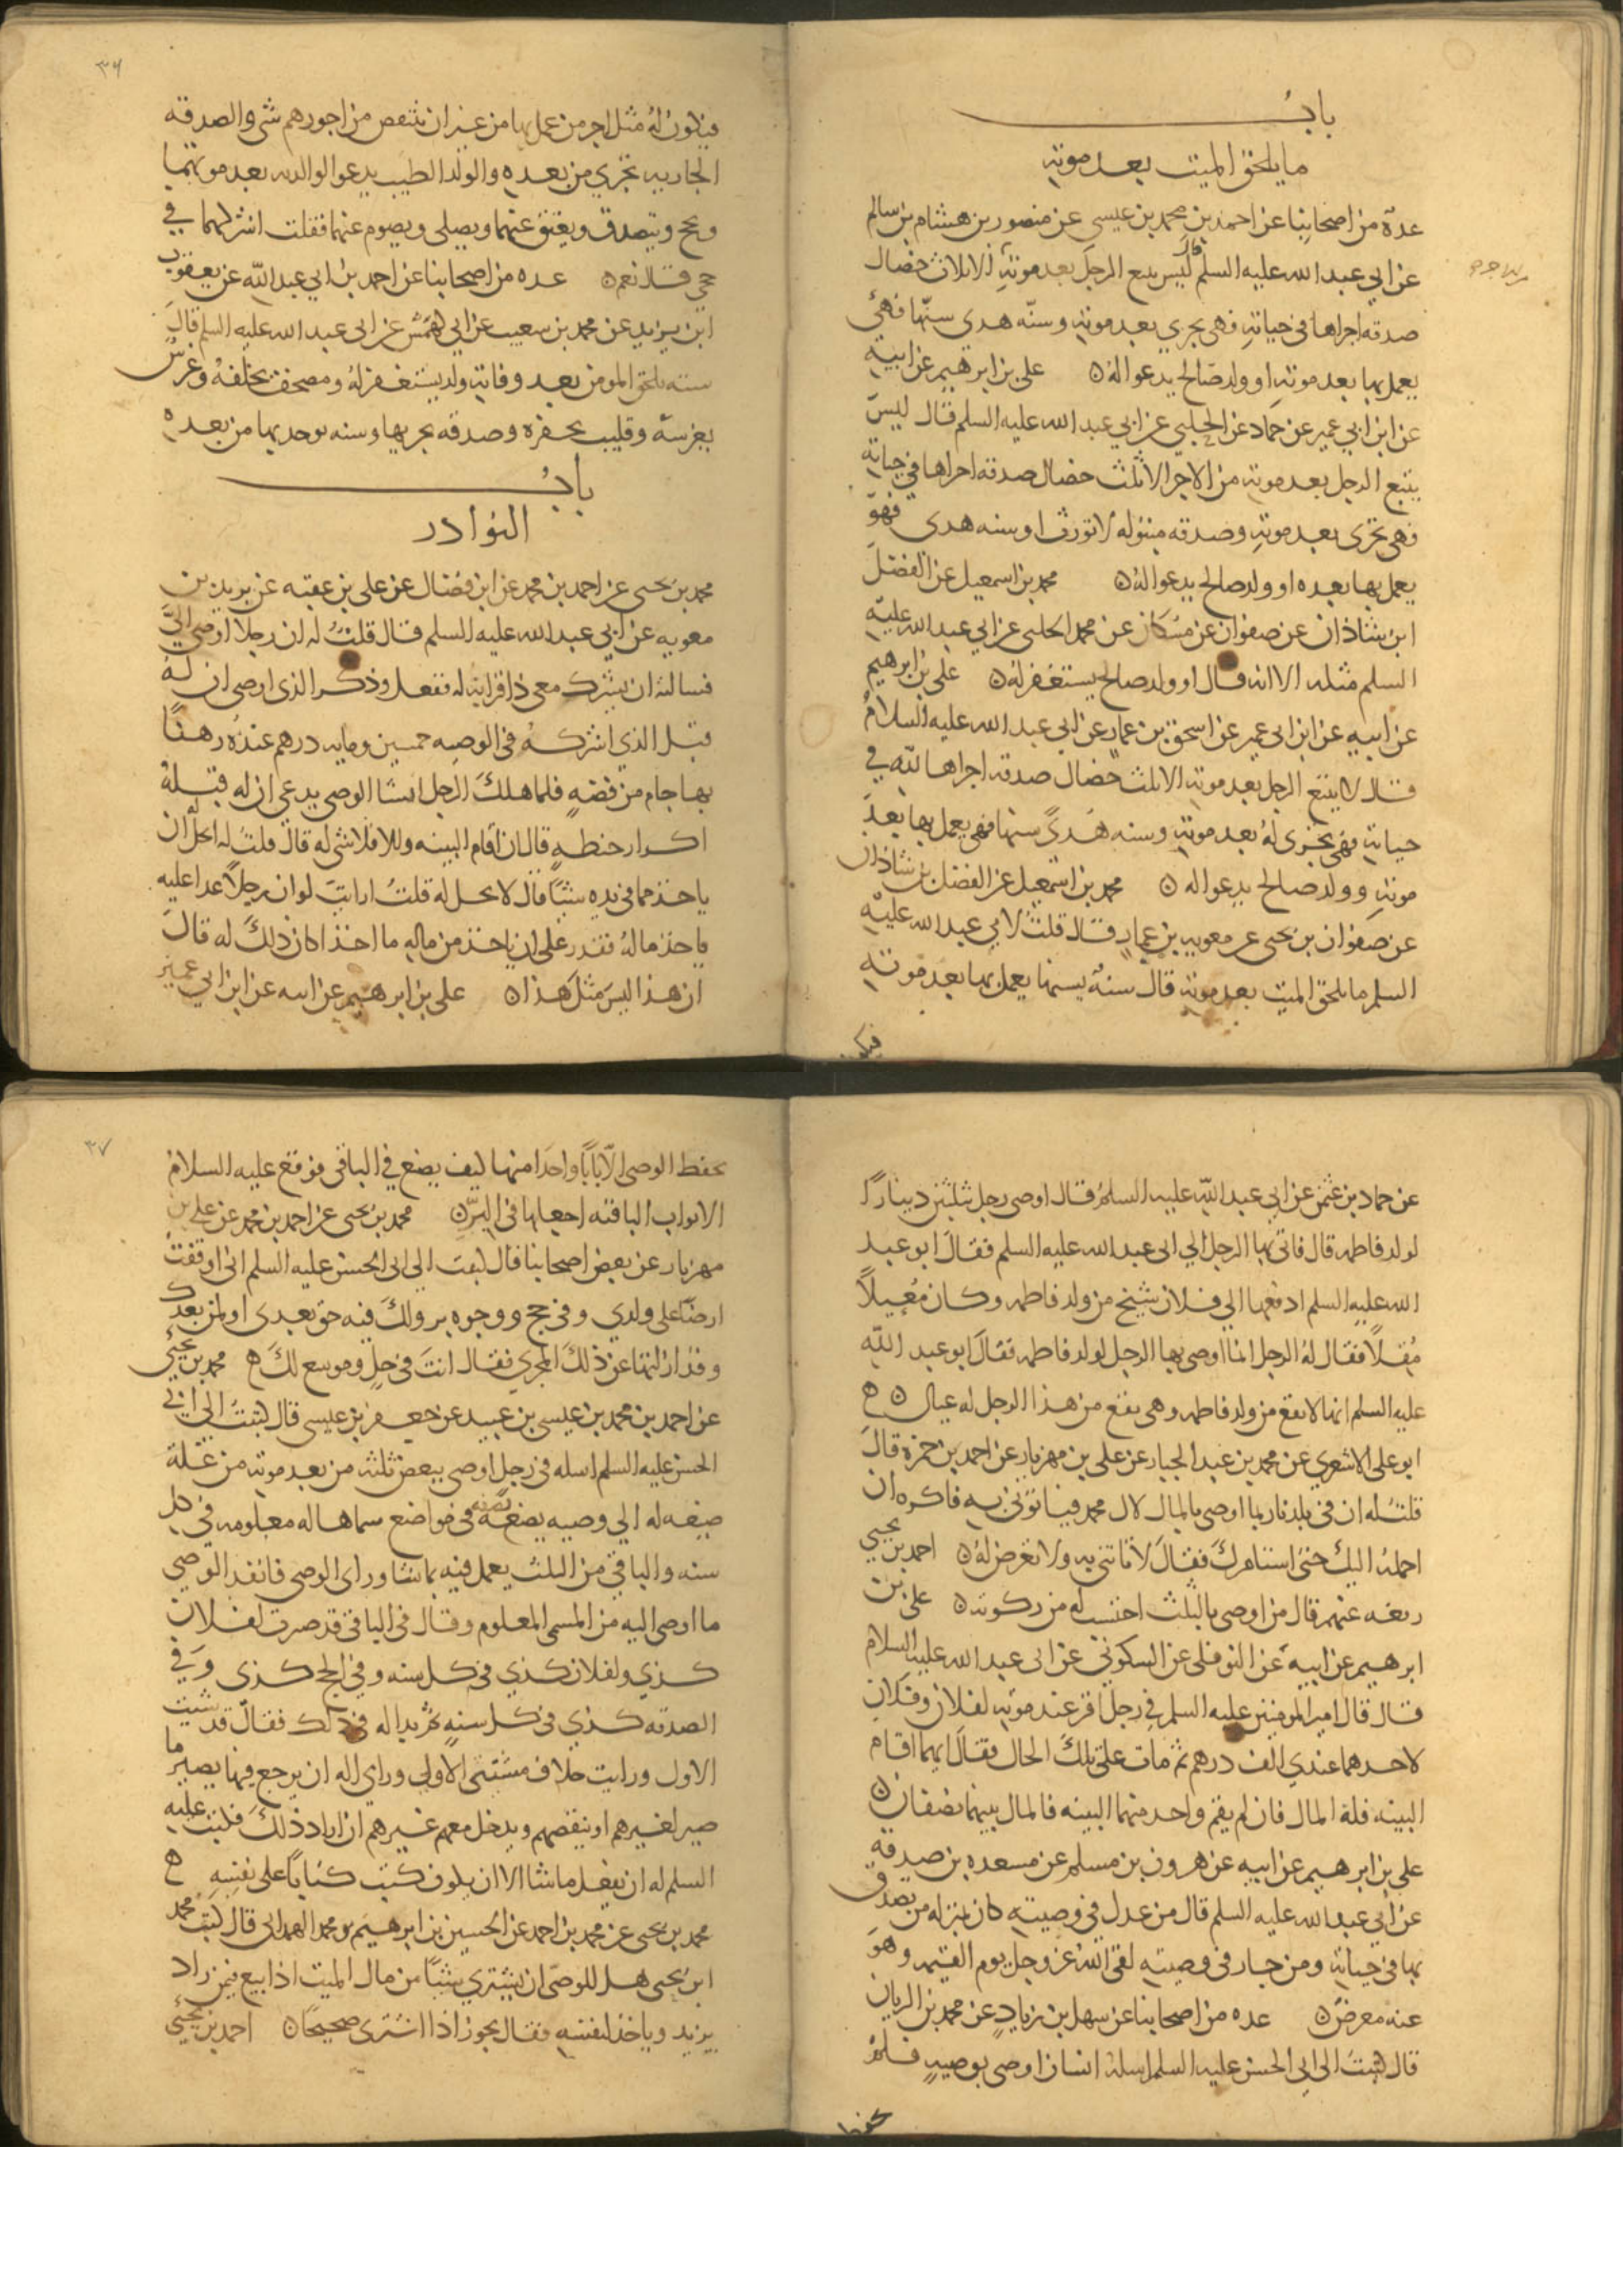 باب
ما يلحق الميت بعد موته
عدة من اصحابنا عن احمد بن محمد بن عيسى عن منصور بن هشام بن سالم
عن ابي عبد الله عليه السلم قال ليس يتبع الرجل بعد موته الا ثلاث خصال
صدقه اجراها في حياته فهى تجري بعد موته وسنه هدى سنها فهى
يعمل بها بعد موته او ولد صالح يدعوا له ن علي بن ابرهيم عن ابيه
عن ابن ابي عمير عن حماد عن الحلبي عن ابي عبد الله عليه السلم قال ليس
يتبع الرجل بعد موته من الاجر الا ثلث خصال صدقه اجراها في حياته
فهي تجرى بعد موته وصدقه مبتوله لا تورث او سنه هدى فهو
يعمل بها بعده او ولد صالح يدعوا له ن محمد بن اسمعيل عن الفضل
ابن شاذان عن صفوان عن مسكان عن محمد الحلبى عن ابي عبد الله عليه
السلم مثله الا انه قال او ولد صالح يستغفر له ن على بن ابرهيم
عن ابيه عن ابن ابى عمير عن اسحق بن عمار عن ابي عبد الله عليه السلام
قال لا يتبع الرجل بعد موته الا ثلث خصال صدقه اجراها لله في
حياته فهى تجرى له بعد موته وسنه هدى سنها فهى يعمل بها بعد
موته وولد صالح يدعوا له ن محمد بن اسمعيل عن الفضل بن شاذان
عن صفوان بن يحيى عن معويه بن عمار قال قلت لابي عبد الله عليه
السلم ما يلحق الميت بعد موته قال سنه يسنها يعمل بها بعد موته
فيكون
٣٦
فيكون له مثل اجر من عمل بها من غير ان ينتقص من اجورهم شى والصدقه
الجاريه تجري من بعده والولد الطيب يدعوا لوالديه بعد موتهما
ويحج ويتصدق ويعتق عنهما ويصلى ويصوم عنهما فقلت اشركهما في
حجي قال نعم ن عده من اصحابنا عن احمد بن ابي عبد الله عن يعقوب
ابن يزيد عن محمد بن سعيب عن ابي كهمش عن ابى عبد الله عليه السلم قال
سته يلحق المومن بعد وفاته ولد يستغفر له ومصحف يخلفه وغرس
يغرسه وقليب يحفره وصدقه يجريها وسنه يوحد بها من بعده
باب
النوادر
محمد بن يحيى عن احمد بن محمد عن ابن فضال عن على بن عقبه عن بريد بن
معويه عن ابي عبد الله عليه السلم قال قلت له ان رجلا اوصي الي
فسالته ان يشرك معى ذا قرابه له ففعل وذكر الذى اوصى ان له
قبل الذي اشركه في الوصيه خمسين ومايه درهم عنده رهنا
بها جام من فضه فلما هلك الرجل انشا الوصي يدعي ان له قبله
اكرار حنطه قال ان اقام البينه والا فلا شى له قال قلت له ايحل ان
ياخذ مما في يده شيئا قال لا يحل له قلت ارايت لو ان رجلا عدا عليه
فاخذ ماله فقدر على ان ياخذ من ماله ما اخذ اكان ذلك له قال
ان هذا ليس مثل هذا ن على بن ابرهيم عن ابيه عن ابن ابي عمير
عن حماد بن عثمن عن ابي عبد الله عليه السلم قال اوصى رجل بثلثين دينارا
لولد فاطمه قال فاتى بها الرجل الي ابى عبد الله عليه السلم فقال ابو عبد
الله عليه السلم ادفعها الي فلان شيخ من ولد فاطمه وكان معيلا
مقلا فقال له الرجل انما اوصى بها الرجل لولد فاطمه فقال ابو عبد الله
عليه السلم انها لا تقع من ولد فاطمه وهى تقع من هذا الرجل له عيال ن
ابو على الاشعري عن محمد بن عبد الجبار عن على بن مهزيار عن احمد بن حمزه قال
قلت له ان في بلدنا ربما اوصى بالمال لال محمد فياتوني به فاكره ان
احمله اليك حتى استامرك فقال لا تاتني به ولا تعرض له ن احمد بن يحيي
رفعه عنهم قال من اوصى بالثلث احتسب له من زكوته ن على بن
ابرهيم عن ابيه عن النوفلى عن السكوني عن ابى عبد الله عليه السلام
قال قال امير المومنين عليه السلم في رجل اقر عند موته لفلان وفلان
لاحدهما عندي الف درهم ثم مات على تلك الحال فقال ايهما اقام
البينه فله المال فان لم يقم واحد منهما البينه فالمال بينهما نصفان ن
على بن ابرهيم عن ابيه عن هرون بن مسلم عن مسعده بن صدقه
عن ابي عبد الله عليه السلم قال من عدل في وصيته كان بمنزله من تصدق
بها في حياته ومن جار في وصيته لقى الله عز وجل يوم القيمه وهو
عنه معرض ن عده من اصحابنا عن سهل بن زياد عن محمد بن الريان
قال كتبت الى ابي الحسن عليه السلم اسله انسان اوصى بوصيه فلم
يحفظ
٣٧
يحفظ الوصى الا بابا واحدا منها كيف يصنع في الباقى فوقع عليه السلام
الابواب الباقيه اجعلها في البر ن محمد بن يحيى عن احمد بن محمد عن علي بن
مهزيار عن بعض اصحابنا قال كتبت الى ابى الحسن عليه السلم انى اوقفت
ارضا على ولدي وفي حج ووجوه بر ولك فيه حق بعدى او لمن بعدك
وقد ازلتها عن ذلك المجرى فقال انت في حل وموسع لك محمد بن يحيي
عن احمد بن محمد بن عيسى بن عبيد عن جعفر بن عيسى قال كتبت الي ابى
الحسن عليه السلم اسله في رجل اوصى ببعض ثلثه من بعد موته من غلة
ضيعه له الي وصيه يضع نصفه في مواضع سماها له معلومه في كل
سنه والباقي من الثلث يعمل فيه بما شا وراى الوصى فانفذ الوصي
ما اوصى اليه من المسمى المعلوم وقال في الباقي قد صرت لفلان
كذي ولفلان كذي في كل سنه وفي الحج كذى وفي
الصدقه كذي في كل سنه ثم بدا له في ذلك فقال قد شيت
الاول ورايت خلاف مشيتي الاولى وراي اله ان يرجع فيها يصير ما
صير لغيرهم او ينقصهم ويدخل معهم غيرهم ان اراد ذلك فكتب عليه
السلم له ان يفعل ما شا الا ان يكون كتب كتابا على نفسه
محمد بن يحيى عن محمد بن احمد عن الحسين بن ابرهيم بن محمد الهمدانى قال كتب محمد
ابن يحيى هل للوصى ان يشتري شيئا من مال الميت اذا بيع فيمن زاد
يزيد وياخذ لنفسه فقال يجوز اذا اشترى صحيحا ن احمد بن يحيي